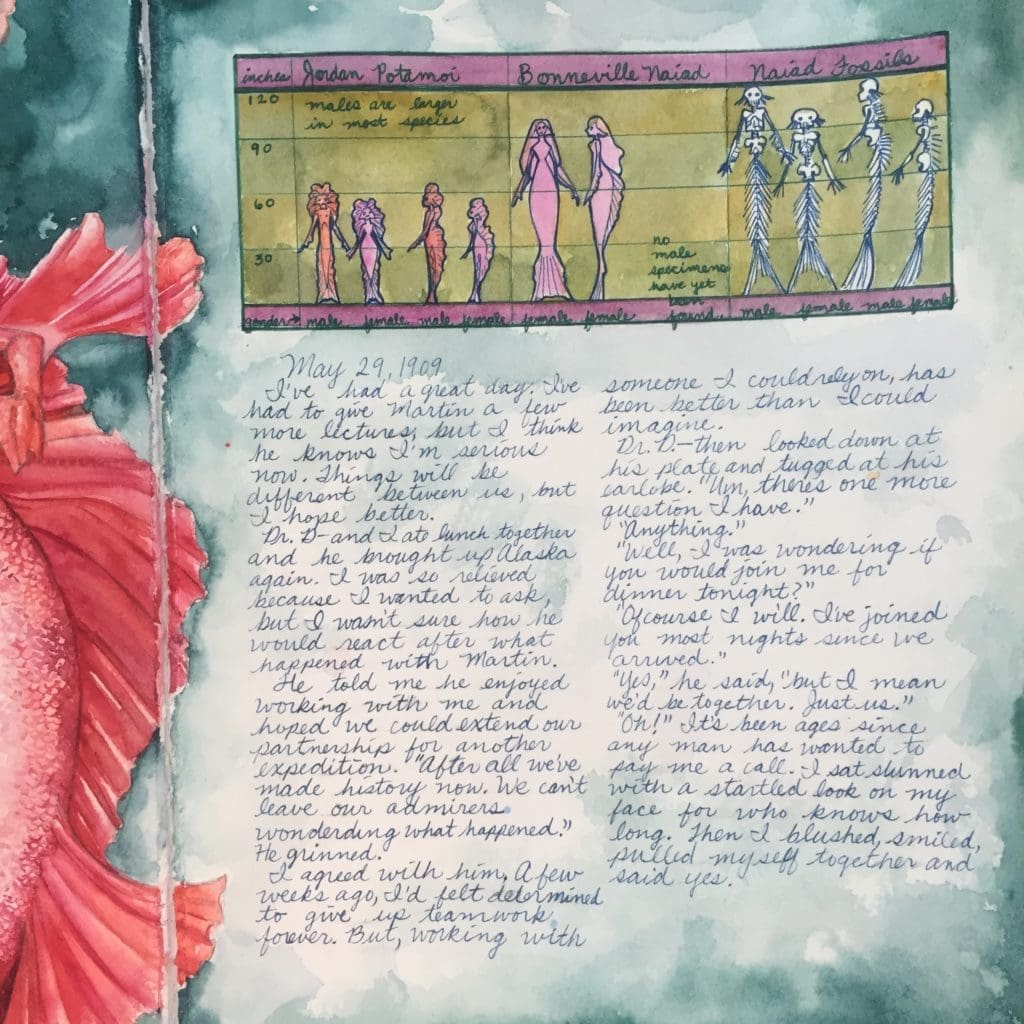 inches
Jordan Potamoi
Bonneville Naiad
Naiad Fossils
120
90
60
30
males are larger
in most species
no
male
specimens
have yet
been
found.
gender→ male female male female female female male female male female
May 29, 1909
I've had a great day. I've
had to give Martin a few
more lectures, but I think
he knows I'm serious
now. Things will be
different between us, but
I hope better.
Dr. D- and I ate lunch together
and he brought up Alaska
again. I was so relieved
because I wanted to ask,
but I wasn't sure how he
would react after what
happened with Martin.
He told me he enjoyed
working with me and
hoped we could extend our
partnership for another
expedition. "After all we've
made history now. We can't
leave our admirers
wonderding what happened."
He grinned.
I agreed with him. A few
weeks ago, I'd felt determined
to give up teamwork
forever. But, working with
someone I could rely on, has
been better than I could
imagine.
Dr. D.- then looked down at
his plate and tugged at his
earlobe. "Um, there's one more
question I have."
"Anything."
"Well, I was wondering if
you would join me for
dinner tonight?"
"Ofcourse I will. I've joined
you most nights since we
arrived."
"Yes," he said, "but I mean
we'd be together. Just us."
"Oh!" It's been ages since
any man has wanted to
pay me a call. I sat stunned
with a startled look on my
face for who knows how
long. Then I blushed, smiled,
pulled myself together and
said yes.